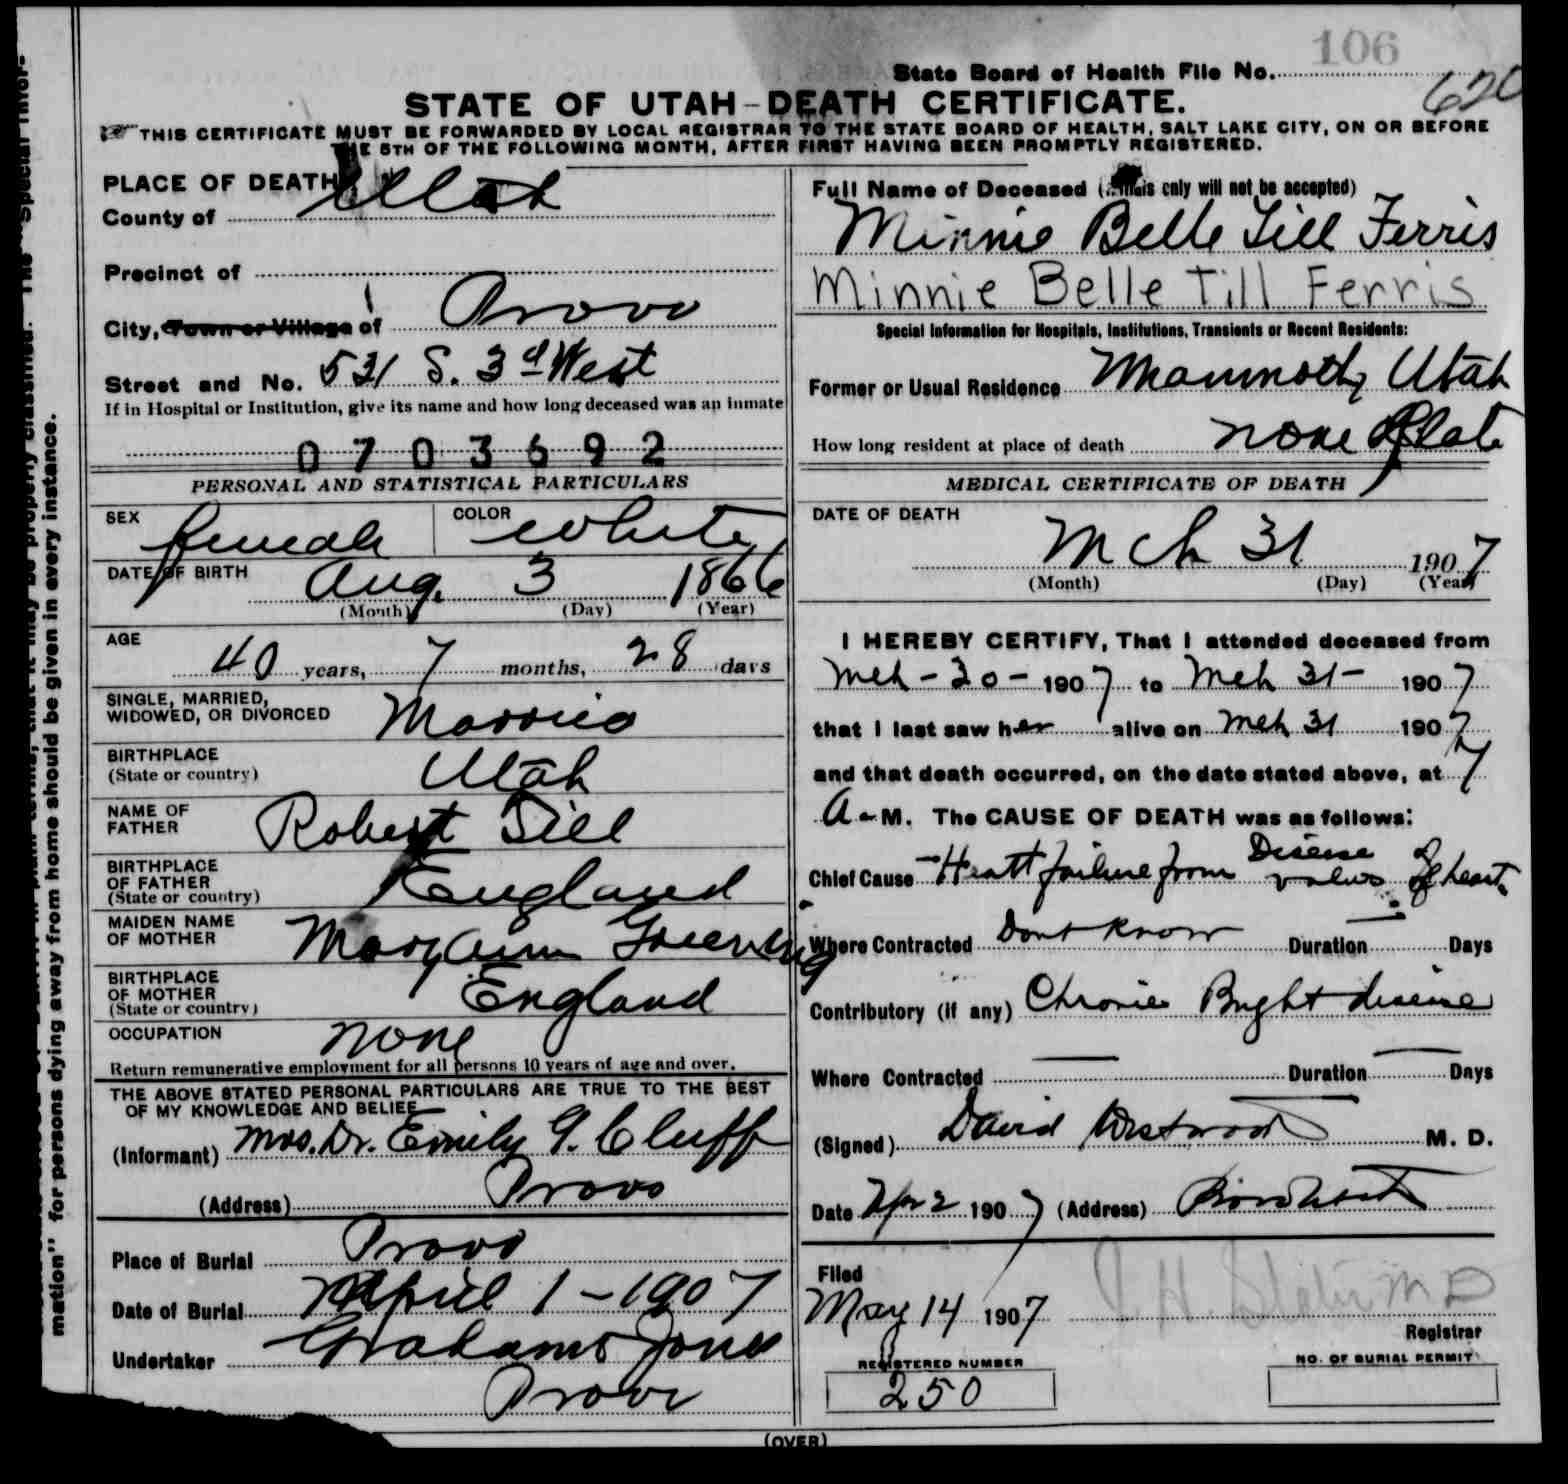 106
State Board of Health File No. 620
STATE OF UTAH - DEATH CERTIFICATE.
THIS CERTIFICATE MUST BE FORWARDED BY LOCAL REGISTRAR TO THE STATE BOARD OF HEALTH, SALT LAKE CITY, ON OR BEFORE
THE 5TH OF THE FOLLOWING MONTH, AFTER FIRST HAVING BEEN PROMPTLY REGISTERED.
PLACE OF DEATH
County of Utah
Precinct of
City, Town or Village of Provo
Street and No. 531 S. 3d West
If in Hospital or Institution, give its name and how long deceased was an inmate
0703692
PERSONAL AND STATISTICAL PARTICULARS
SEX female COLOR White
DATE OF BIRTH Aug. 3 1866
(Month) (Day) (Year)
AGE 40 years, 7 months, 28 days
SINGLE, MARRIED,
WIDOWED, OR DIVORCED Married
BIRTHPLACE
(State or country) Utah
NAME OF
FATHER Robert Till
BIRTHPLACE
OF FATHER
(State or country) England
MAIDEN NAME
OF MOTHER Mary Ann Greening
BIRTHPLACE
OF MOTHER
(State or country) England
OCCUPATION none
Return remunerative employment for all persons 10 years of age and over.
THE ABOVE STATED PERSONAL PARTICULARS ARE TRUE TO THE BEST
OF MY KNOWLEDGE AND BELIEF
(Informant) Mrs. Dr. Emily G. Cluff
(Address) Provo
Place of Burial Provo
Date of Burial April 1 - 1907
Undertaker Graham & Jones
Provo
Full Name of Deceased (Initials only will not be accepted)
Minnie Belle Till Ferris
Minnie Belle Till Ferris
Special Information for Hospitals, Institutions, Transients or Recent Residents:
Former or Usual Residence Mammoth, Utah
How long resident at place of death none
MEDICAL CERTIFICATE OF DEATH
DATE OF DEATH
Mch 31 1907
(Month) (Day) (Year)
I HEREBY CERTIFY, That I attended deceased from
Mch - 30 - 1907 to Mch 31 - 1907
that I last saw her alive on Mch 31 1907
and that death occurred, on the date stated above, at 7
A-M. The CAUSE OF DEATH was as follows:
Chief Cause - Heart failure from Disease valves of heart
Where Contracted Dont Know Duration — Days
Contributory (if any) Chronic Bright disease
Where Contracted — Duration — Days
(Signed) David Westwood M. D.
Date Apr 2 1907 (Address)
Filed
May 14 1907
Registrar
REGISTERED NUMBER
250
NO. OF BURIAL PERMIT
(OVER)
mation" for persons dying away from home should be given in every instance.